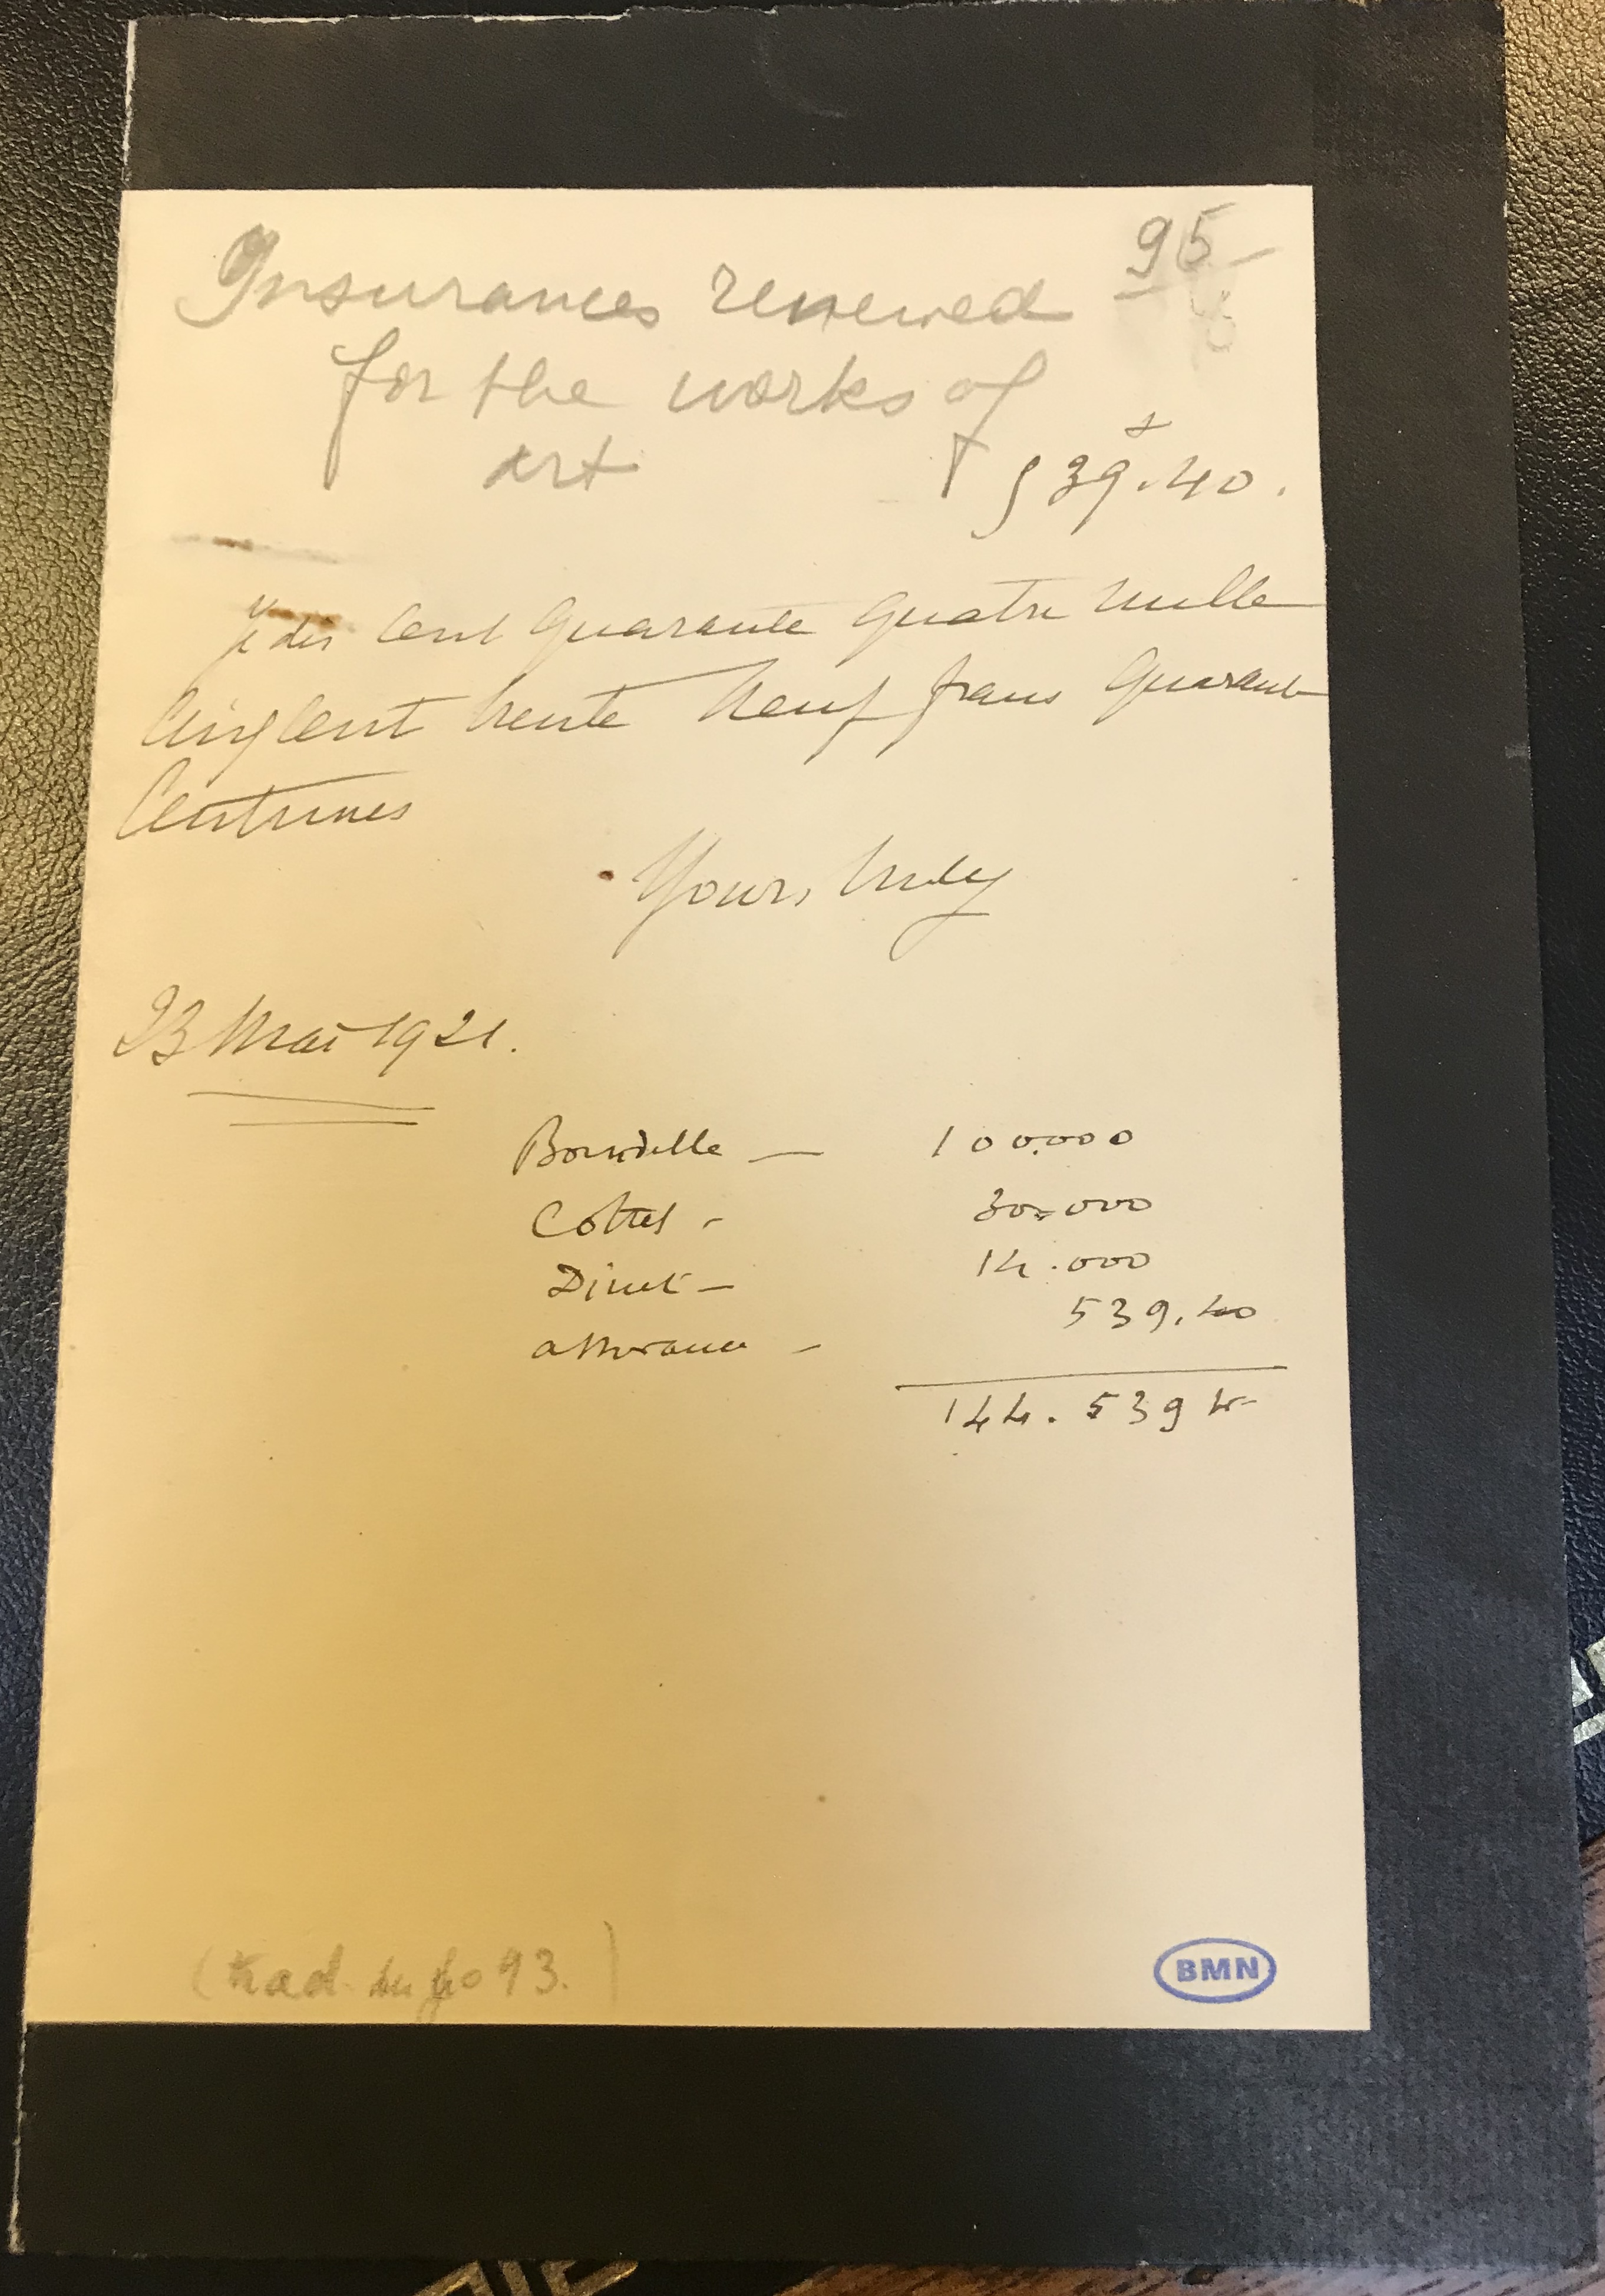 95
Insurances renewed
for the works of
art
539.40.
Je dis Cent Quarante Quatre Mille
Cinq Cent trente Neuf francs Quarante
Centimes
Yours truly
23 Mai 1921.
Bourdelle — 100.000
Cottet - 30.000
Dinet - 14.000
assurance - 539.40
144.539 40
(trad. du fo 93.)
BMN